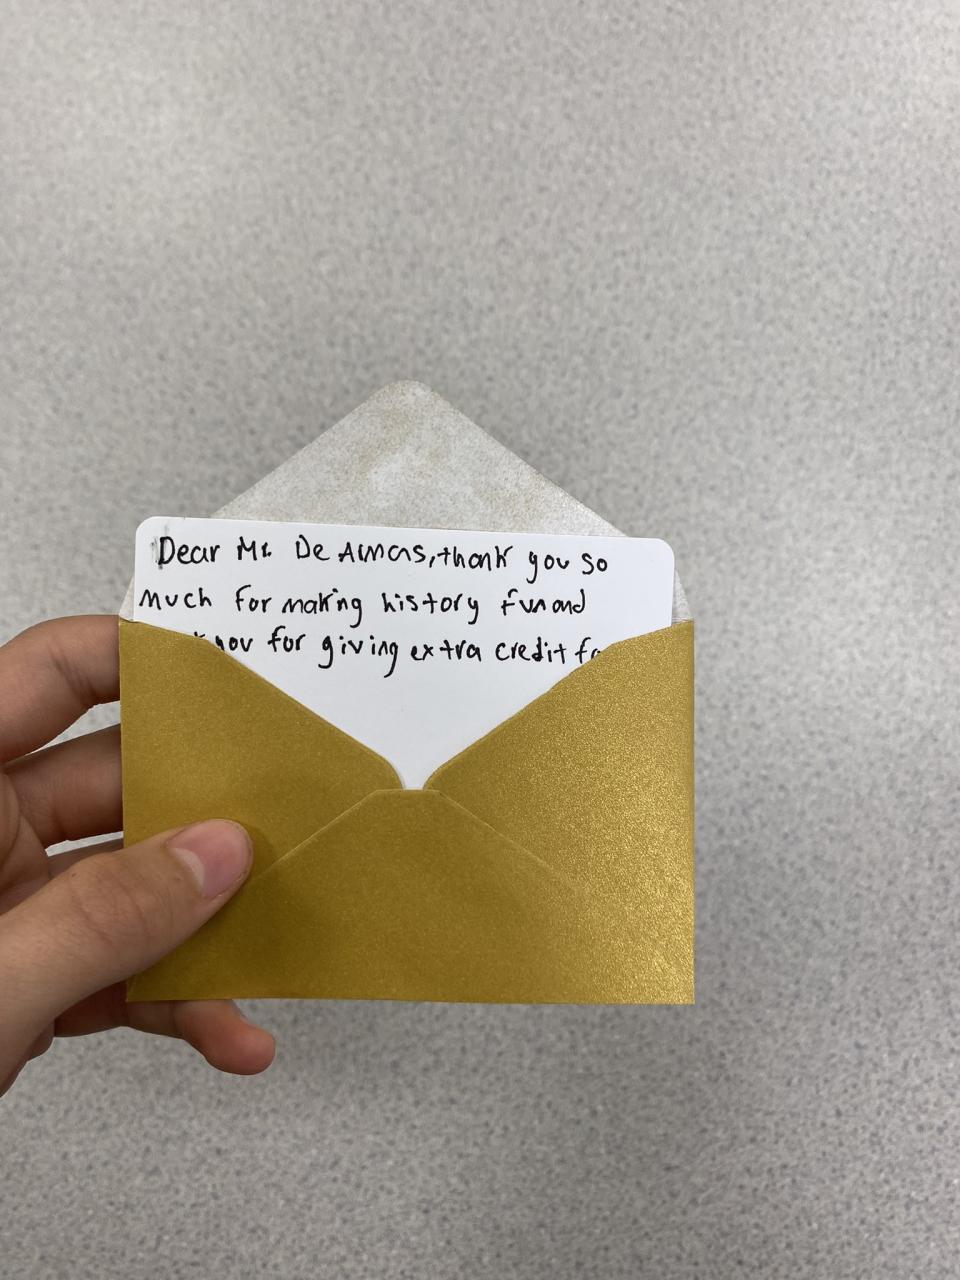 Dear Mr. De Armas, thank you so
much for making history fun and
you for giving extra credit